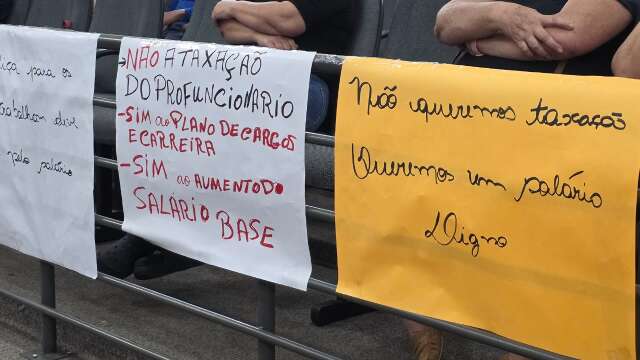 para os
trabalham
pelo salário
→NÃO A TAXAÇÃO
DO PROFUNCIONÁRIO
-SIM ao PLANO DE CARGOS
E CARREIRA
-SIM ao AUMENTO DO
SALÁRIO BASE
Não queremos taxação
Queremos um salário
Digno